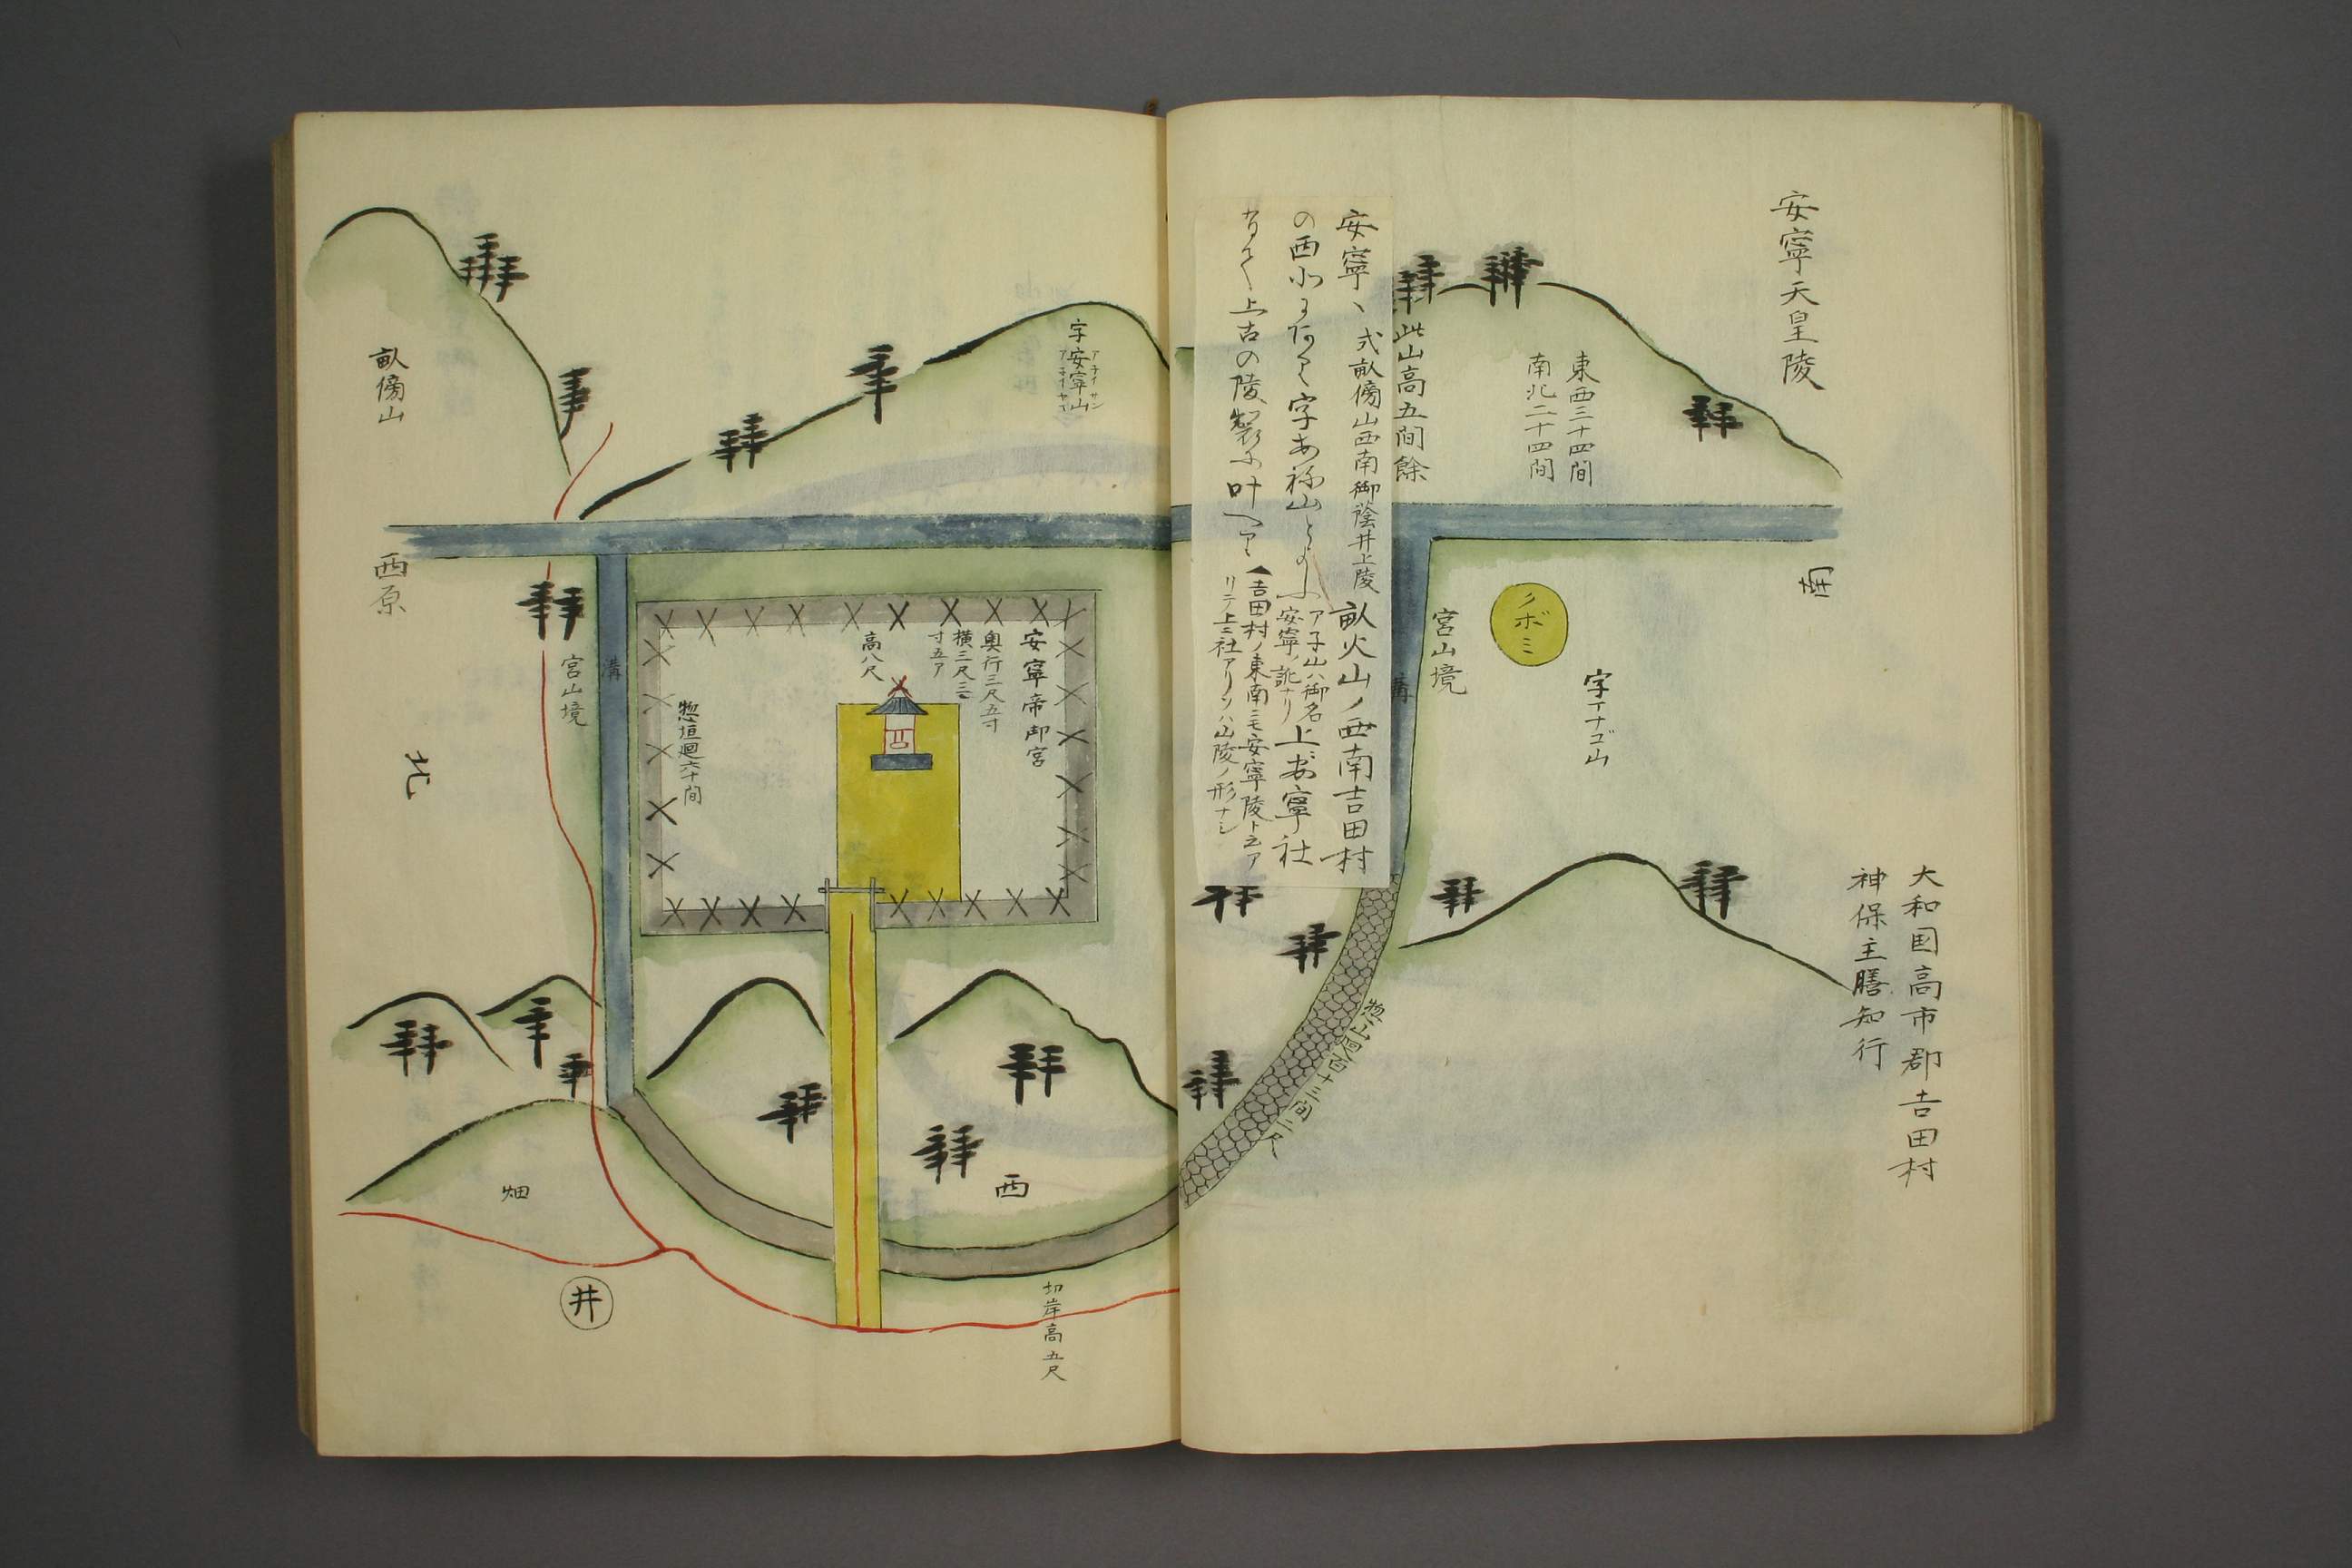 安寧天皇陵
大和国高市郡吉田村
神保主膳知行
東西三十四間
南北二十四間
此山高五間餘
南
クボミ
字イナゴ山
宮山境
溝
惣山廻百十三間二尺
安寧、式畝傍山西南御陰井上陵
畝火山ノ西南吉田村
の西
字あ祢山と
アネ山ハ御名
安寧ノ訛ナリ
上ニ安寧社
上古の陵製に叶へり
▲吉田村ノ東南ニモ安寧陵ト云ア
リテ上ニ社アリソハ山陵ノ形ナシ
字安寧山
アネイサン
アネイヤマ
安寧帝御宮
奥行三尺五寸
横三尺三
寸五ア
高八尺
惣垣廻六十間
溝
宮山境
畝傍山
西原
北
畑
井
西
切岸高五尺